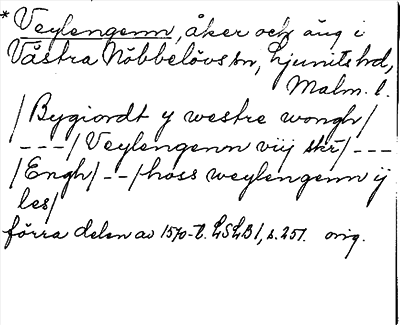 * Veylengenn, åker och äng i
Västra Nöbbelövs sn, Ljunits hd,
Malm. l.
/Bygiordt y westre wongh/
---/Veylengenn viij skr/---
/Engh/--/hoss weylengenn ij
les/
förra delen av 1570-t. LSLB 1, s. 251. orig.